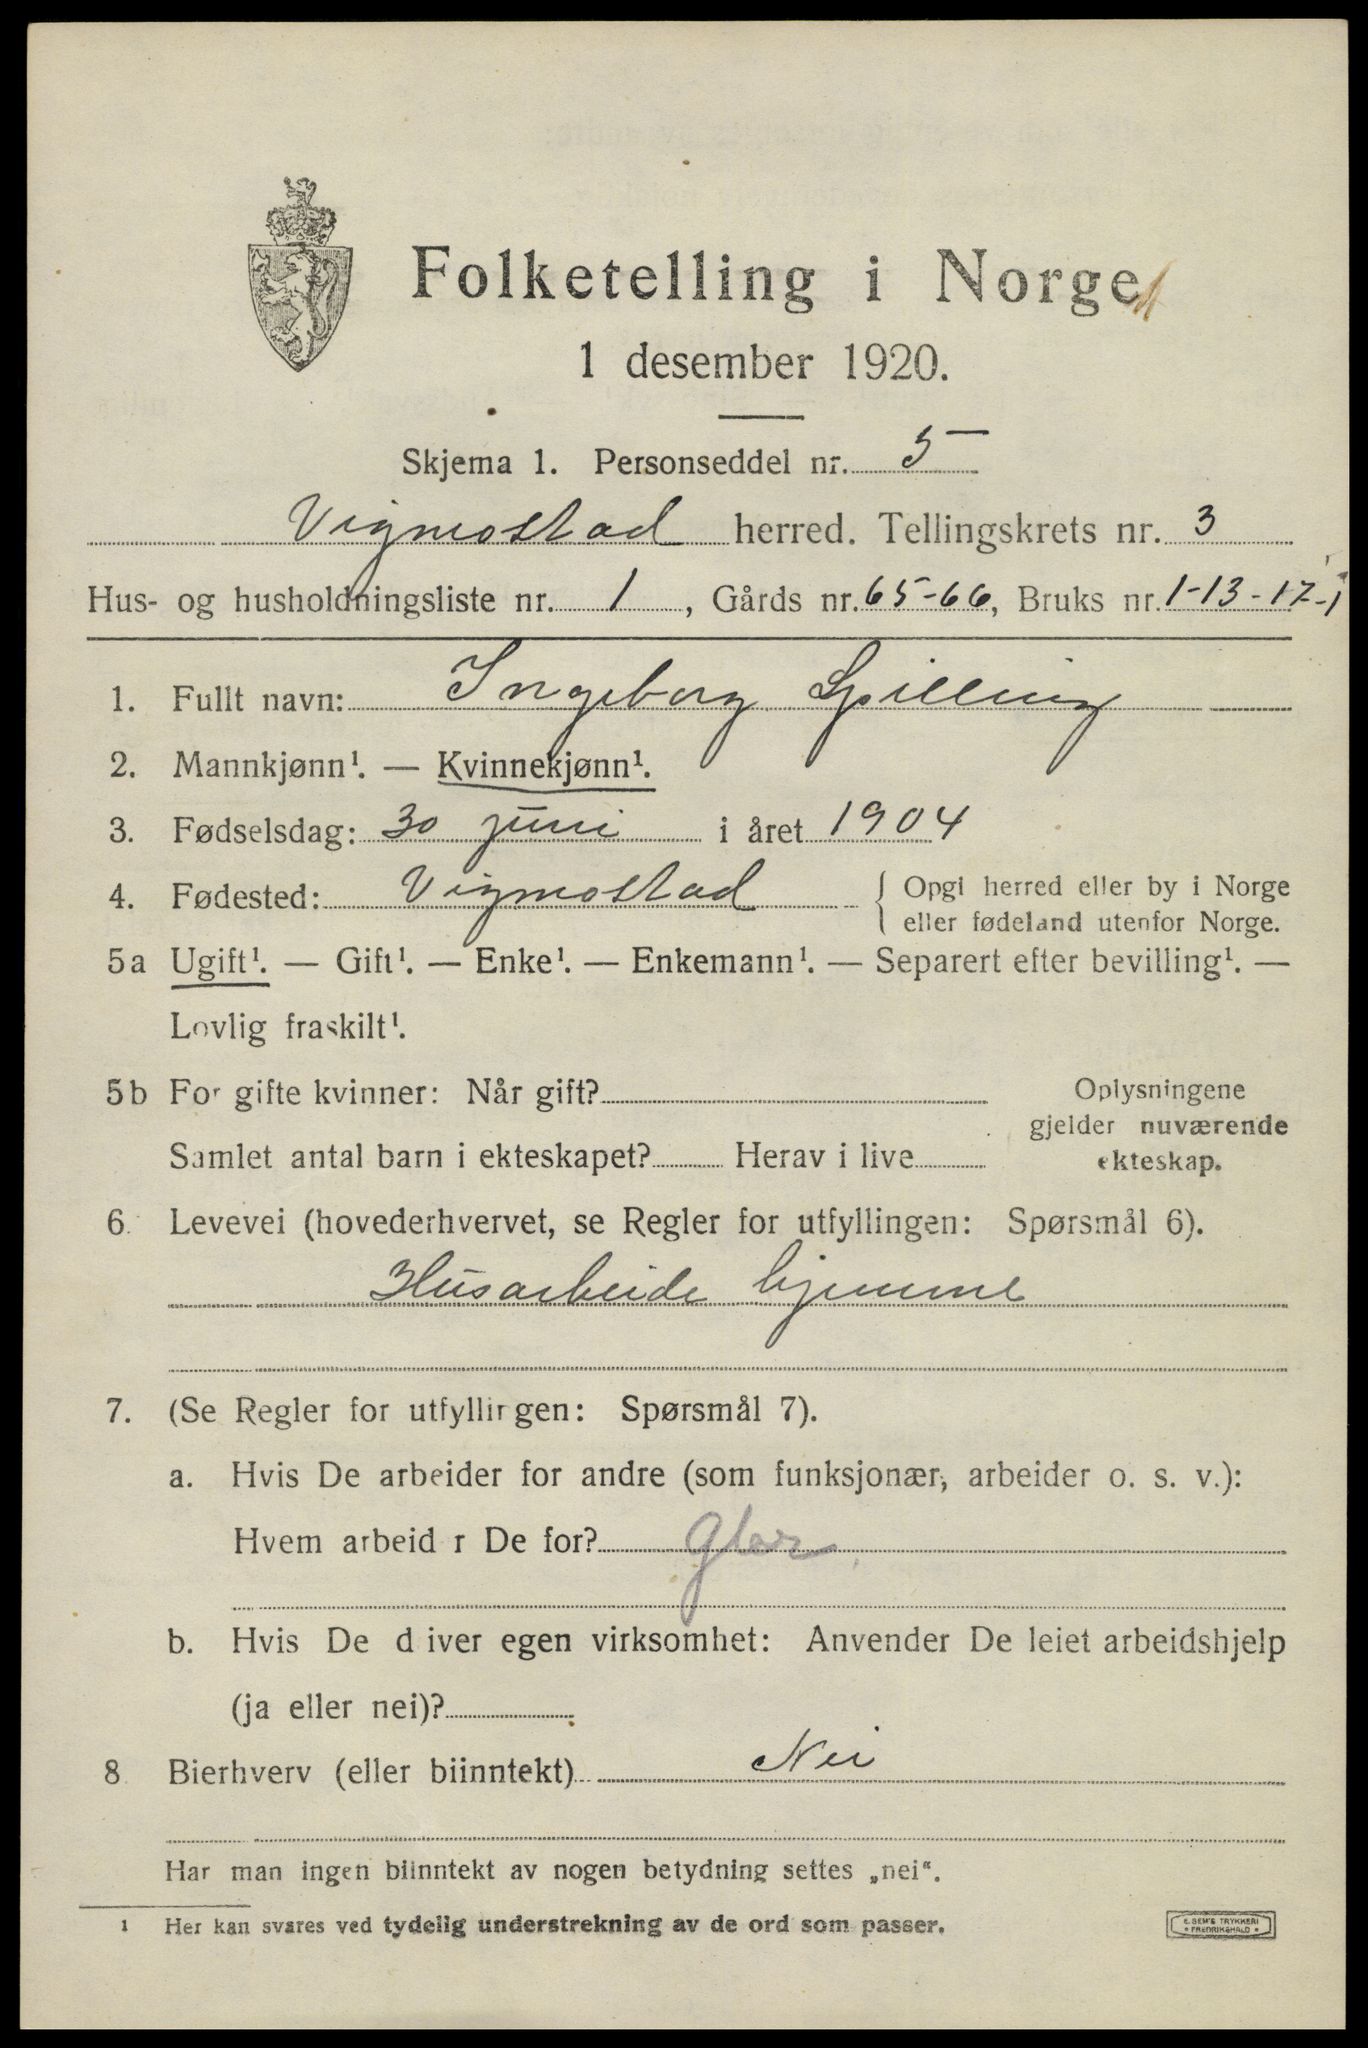 Folketelling i Norge
1 desember 1920.
Skjema 1. Personseddel nr. 5
Vigmostad herred. Tellingskrets nr. 3
Hus- og husholdningsliste nr. 1, Gårds nr. 65-66, Bruks nr. 1-13-17-1
1. Fullt navn: Ingeborg Spilling
2. Mannkjønn¹. — Kvinnekjønn¹.
3. Fødselsdag: 30 juni i året 1904
4. Fødested: Vigmostad { Opgi herred eller by i Norge
eller fødeland utenfor Norge.
5a Ugift¹. — Gift¹. — Enke¹. — Enkemann¹. — Separert efter bevilling¹. —
Lovlig fraskilt¹.
5b For gifte kvinner: Når gift?
Samlet antal barn i ekteskapet? Herav i live
Oplysningene
gjelder nuværende
ekteskap.
6. Levevei (hovederhvervet, se Regler for utfyllingen: Spørsmål 6).
Husarbeide hjemme
7. (Se Regler for utfyllingen: Spørsmål 7).
a. Hvis De arbeider for andre (som funksjonær, arbeider o. s. v.):
Hvem arbeid r De for?
b. Hvis De d iver egen virksomhet: Anvender De leiet arbeidshjelp
(ja eller nei)?
8 Bierhverv (eller biinntekt) Nei
Har man ingen biinntekt av nogen betydning settes „nei“.
1 Her kan svares ved tydelig understrekning av de ord som passer.
E. SEM'S TRYKKERI
• FREDRIKSHALD •